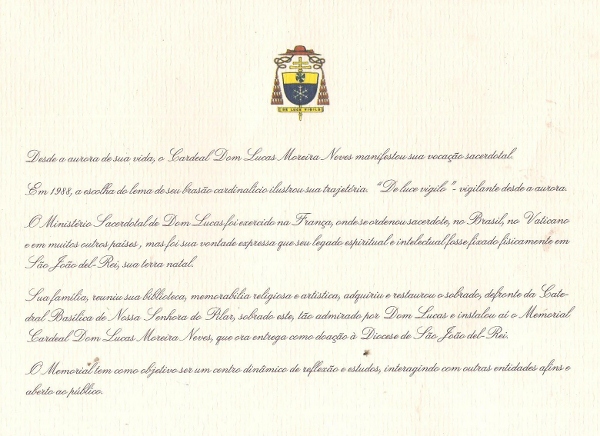 DE LUCE VIGILO
Desde a aurora de sua vida, o Cardeal Dom Lucas Moreira Neves manifestou sua vocação sacerdotal.
Em 1988, a escolha do lema de seu brasão cardinalício ilustrou sua trajetória. "De luce vigilo" - vigilante desde a aurora.
O Ministério Sacerdotal de Dom Lucas foi exercido na França, onde se ordenou sacerdote, no Brasil, no Vaticano
e em muitos outros países, mas foi sua vontade expressa que seu legado espiritual e intelectual fosse fixado fisicamente em
São João del-Rei, sua terra natal.
Sua família, reuniu sua biblioteca, memorabilia religiosa e artística, adquiriu e restaurou o sobrado, defronte da Cate-
dral Basílica de Nossa Senhora do Pilar, sobrado este, tão admirado por Dom Lucas e instalou aí o Memorial
Cardeal Dom Lucas Moreira Neves, que ora entrega como doação à Diocese de São João del-Rei.
O Memorial tem como objetivo ser um centro dinâmico de reflexão e estudos, interagindo com outras entidades afins e
aberto ao público.